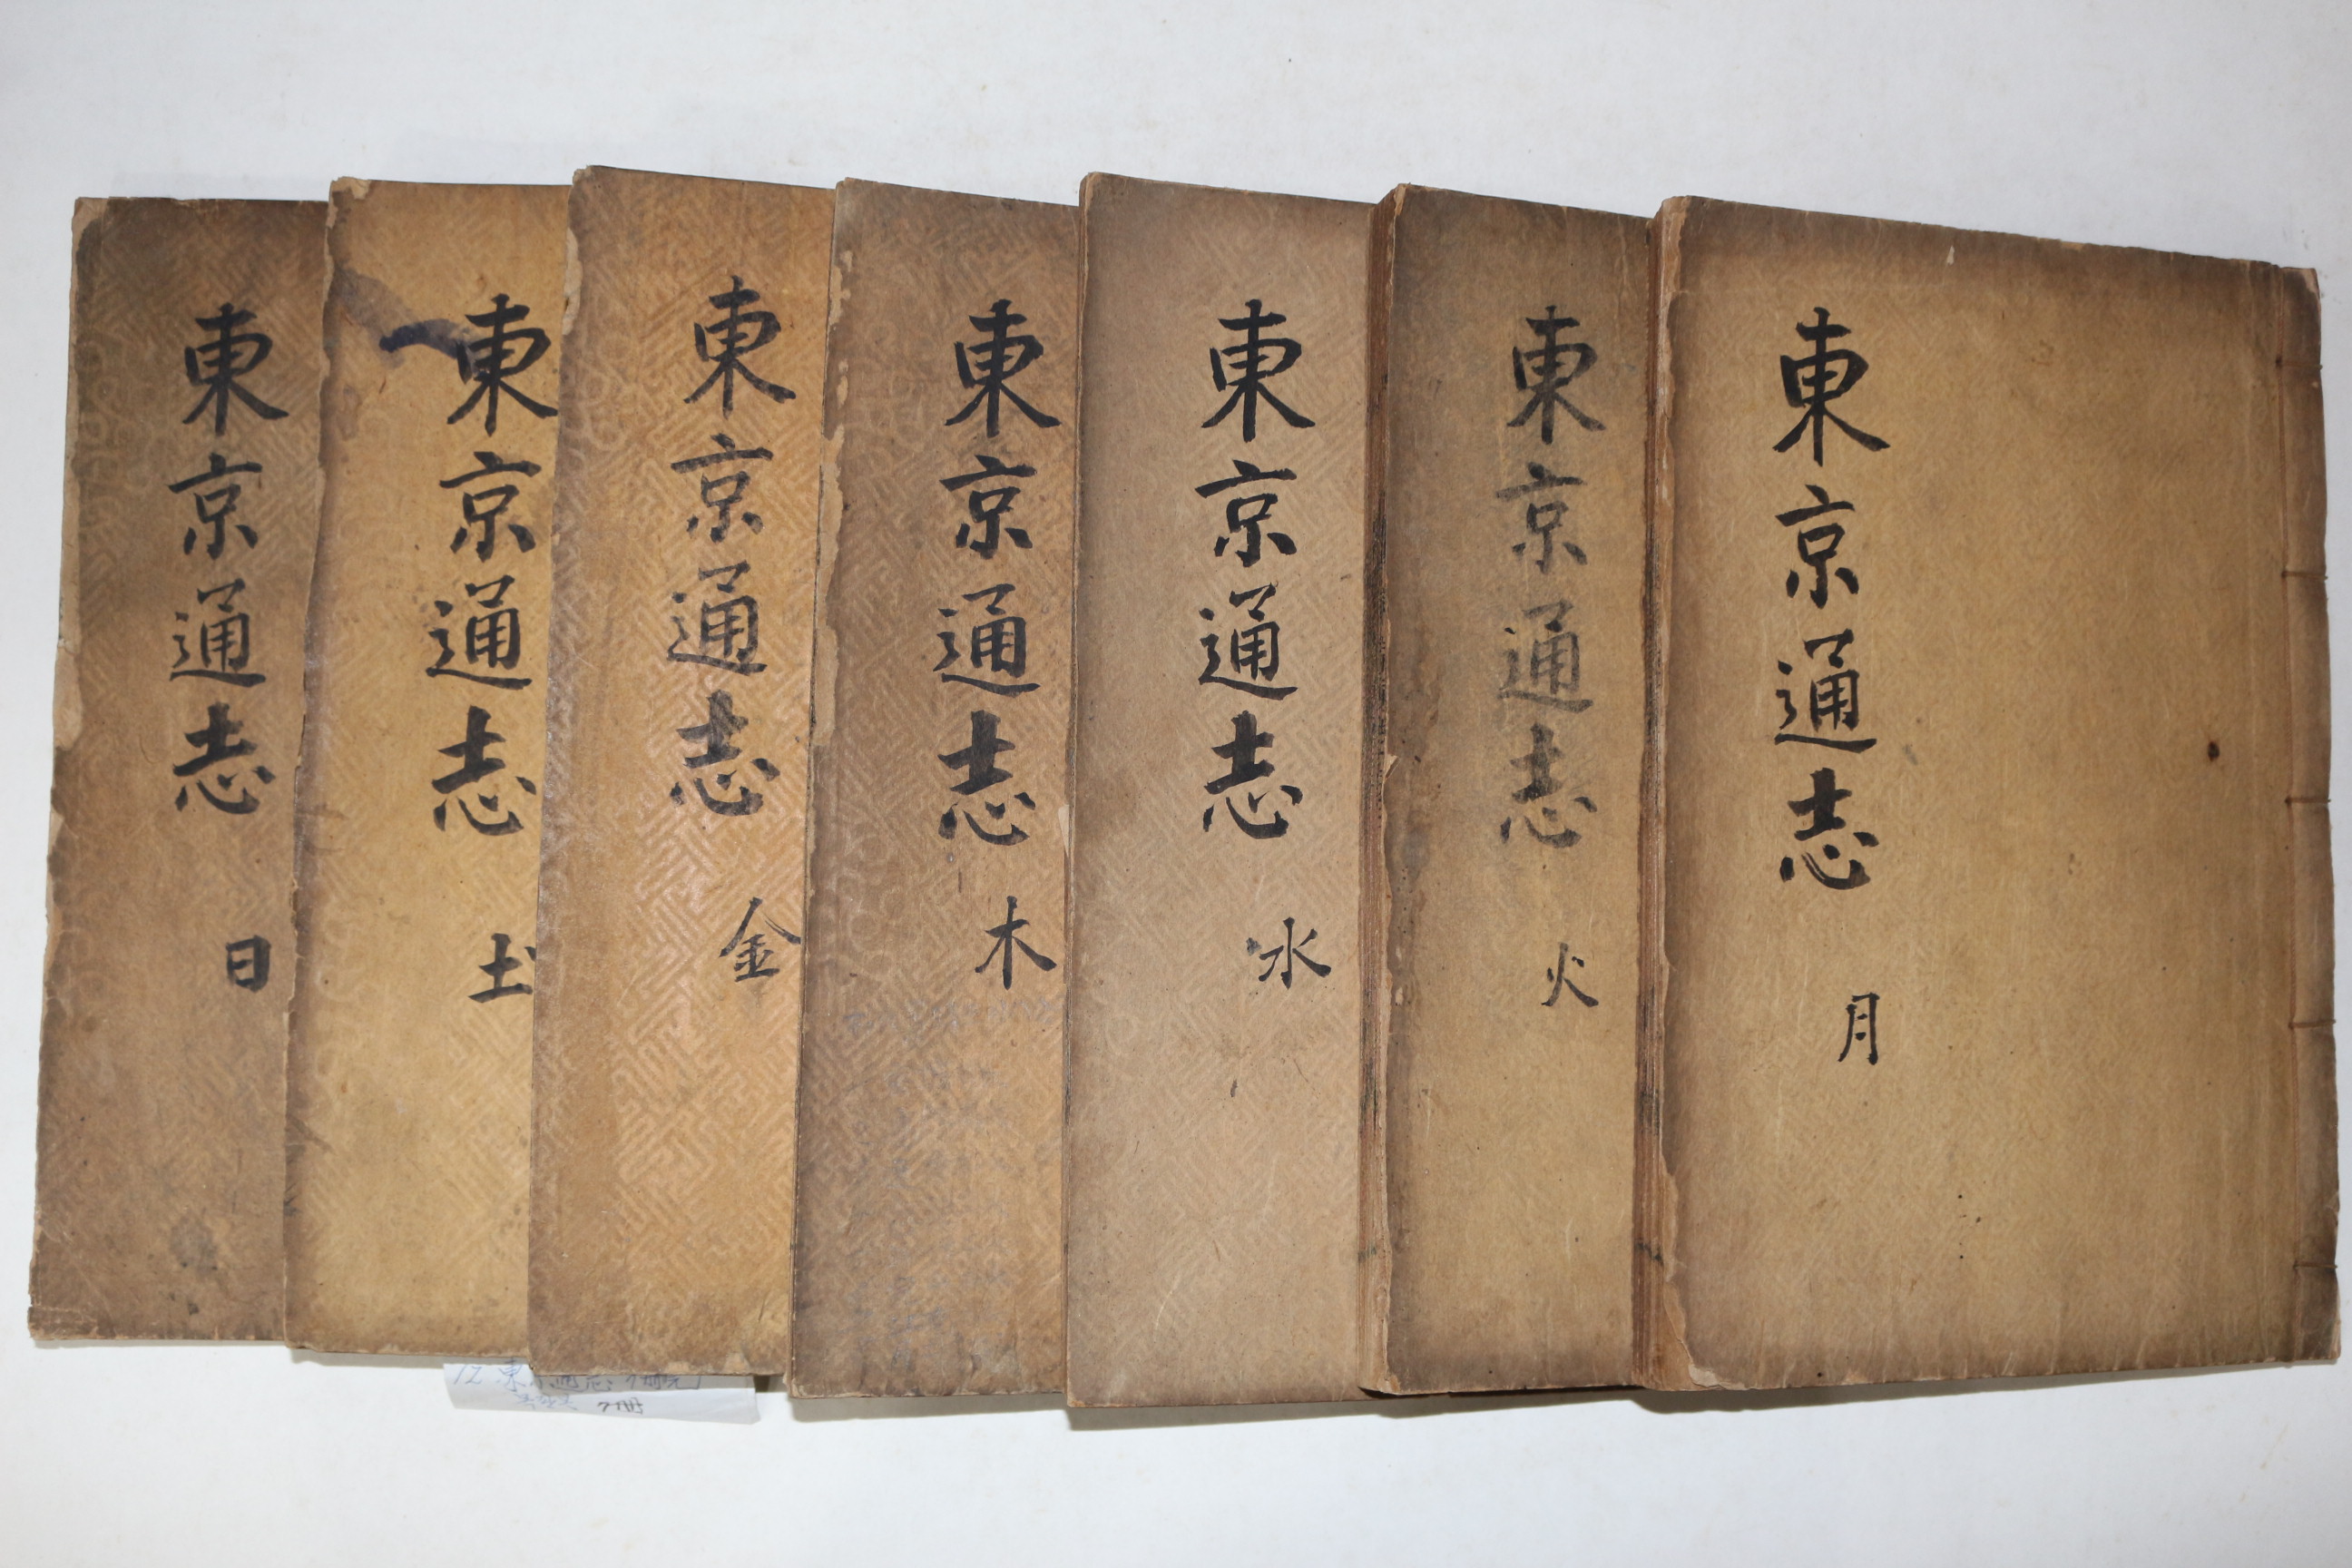 東京通志 月
東京通志 火
東京通志 水
東京通志 木
東京通志 金
東京通志 土
東京通志 日
12 東京通志
7冊